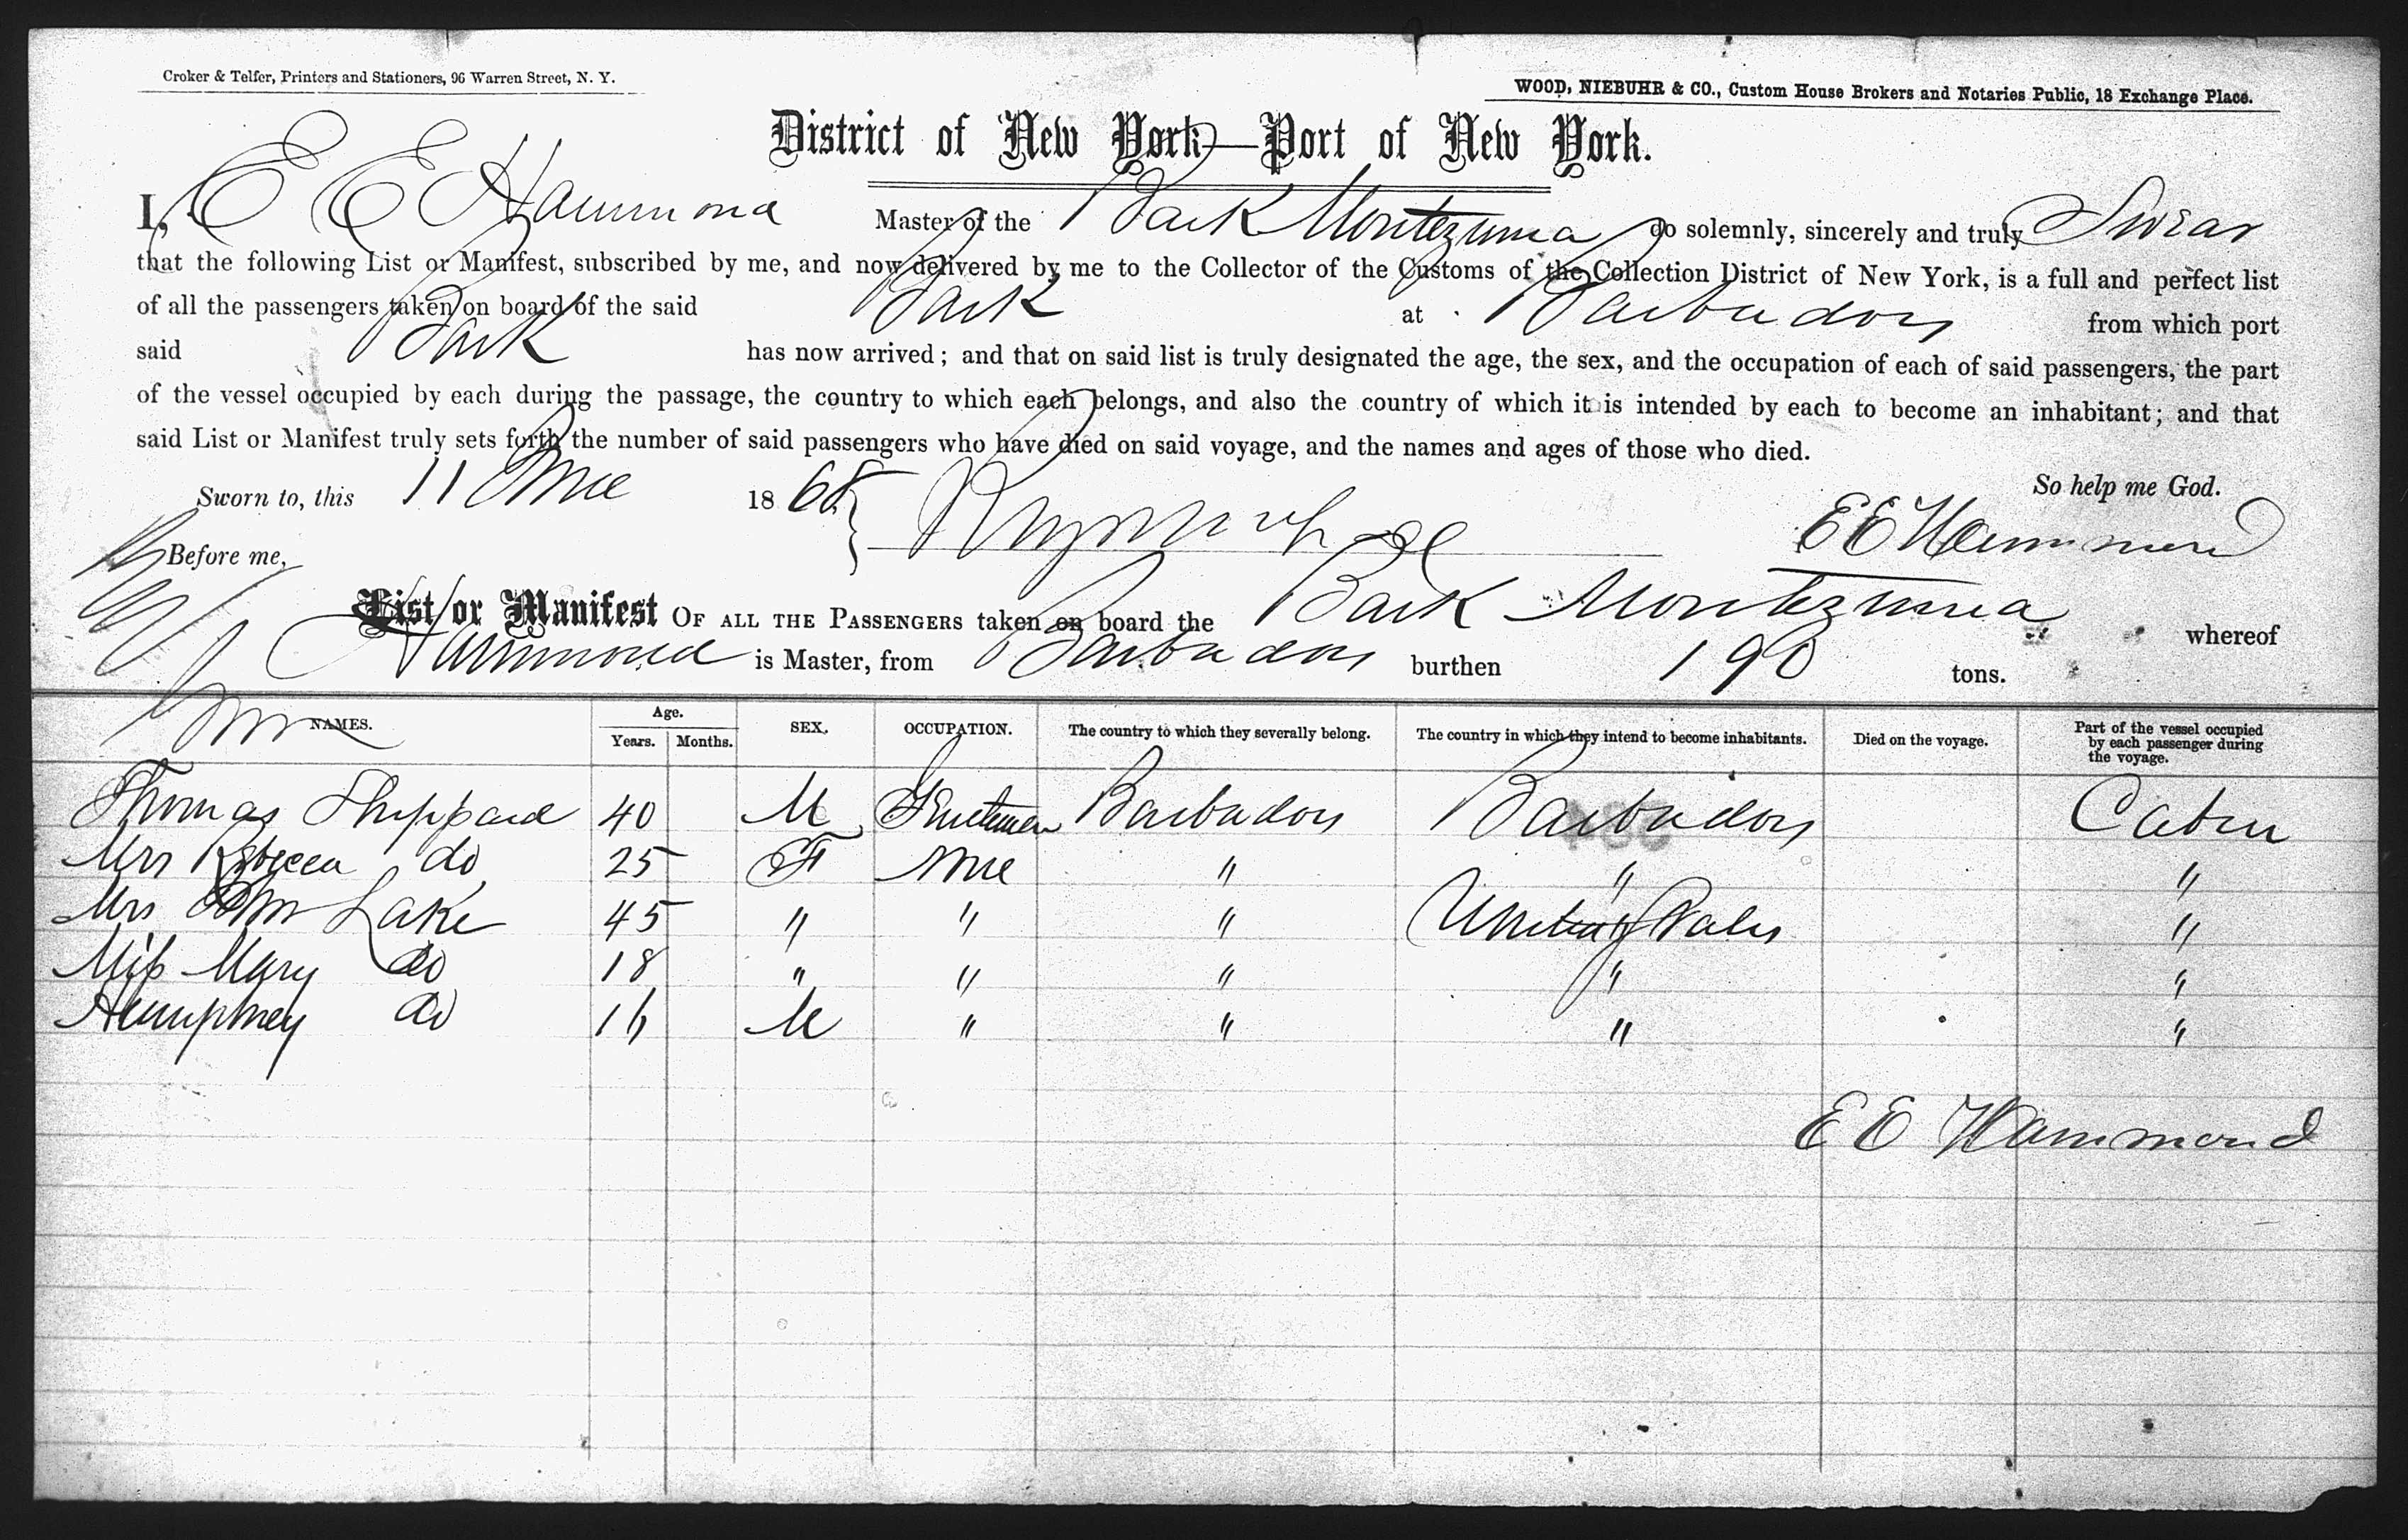 Croker & Telfer, Printers and Stationers, 96 Warren Street, N. Y.
WOOD, NIEBUHR & CO., Custom House Brokers and Notaries Public, 18 Exchange Place.
District of New York—Port of New York.
I, E E Hammond Master of the Bark Montezuma do solemnly, sincerely and truly Swear
that the following List or Manifest, subscribed by me, and now delivered by me to the Collector of the Customs of the Collection District of New York, is a full and perfect list
of all the passengers taken on board of the said Bark at Barbadoes from which port
said Bark has now arrived; and that on said list is truly designated the age, the sex, and the occupation of each of said passengers, the part
of the vessel occupied by each during the passage, the country to which each belongs, and also the country of which it is intended by each to become an inhabitant; and that
said List or Manifest truly sets forth the number of said passengers who have died on said voyage, and the names and ages of those who died.
Sworn to, this 11 June 1868 So help me God.
Before me, E E Hammond
List or Manifest OF ALL THE PASSENGERS taken on board the Bark Montezuma whereof
Hammond is Master, from Barbadoes burthen 190 tons.
NAMES. Age. Years. Months. SEX. OCCUPATION. The country to which they severally belong. The country in which they intend to become inhabitants. Died on the voyage. Part of the vessel occupied by each passenger during the voyage.
Thomas Sheppard 40 M Gentleman Barbadoes Barbadoes Cabin
Mrs Rebecca do 25 F None " " "
Mrs Lake 45 " " " United States "
Miss Mary do 18 " " " " "
Humphrey do 16 M " " " "
E E Hammond